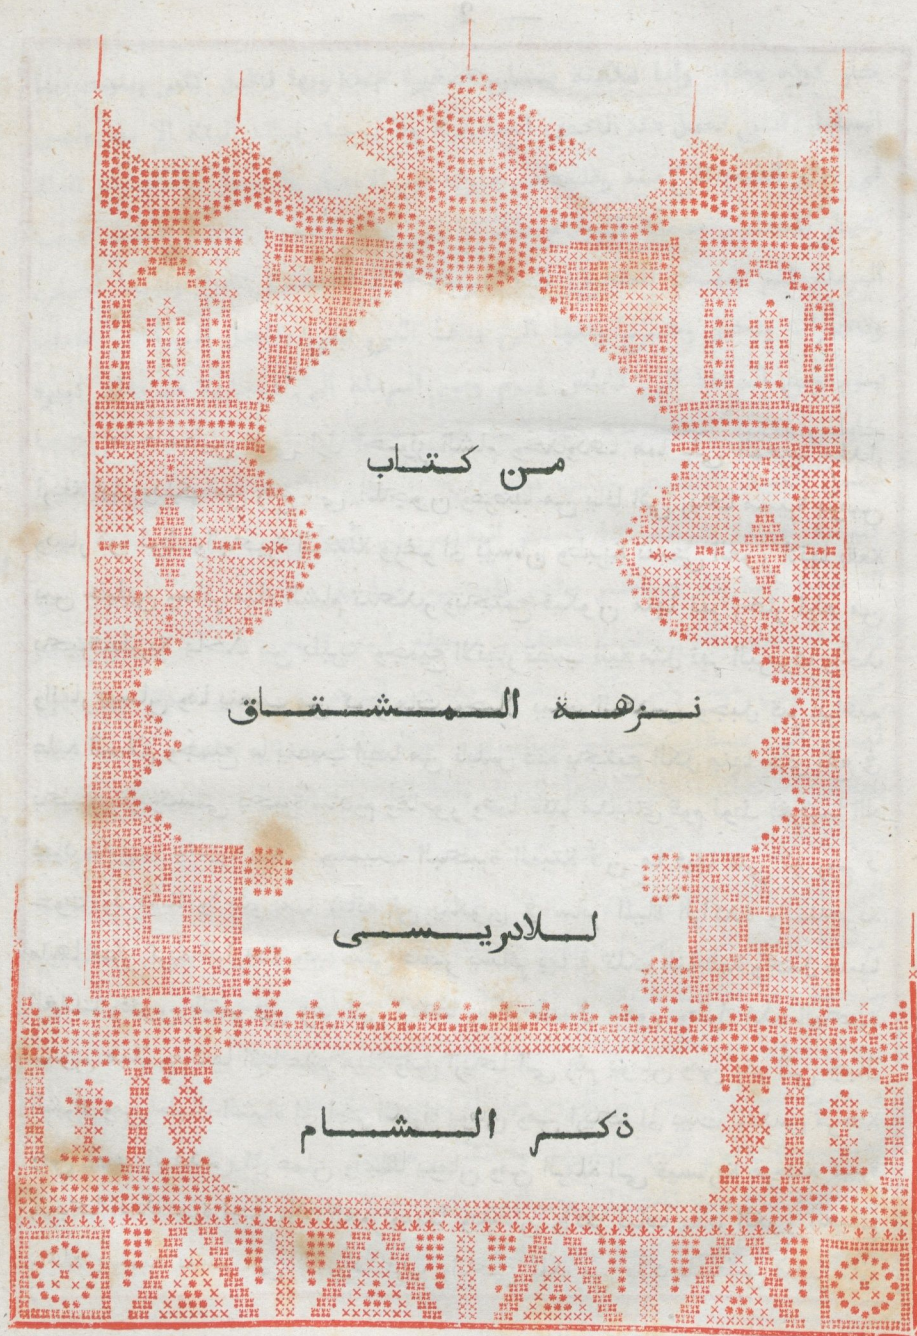 من كتاب
نزهة المشتاق
للادريسى
ذكر الشام